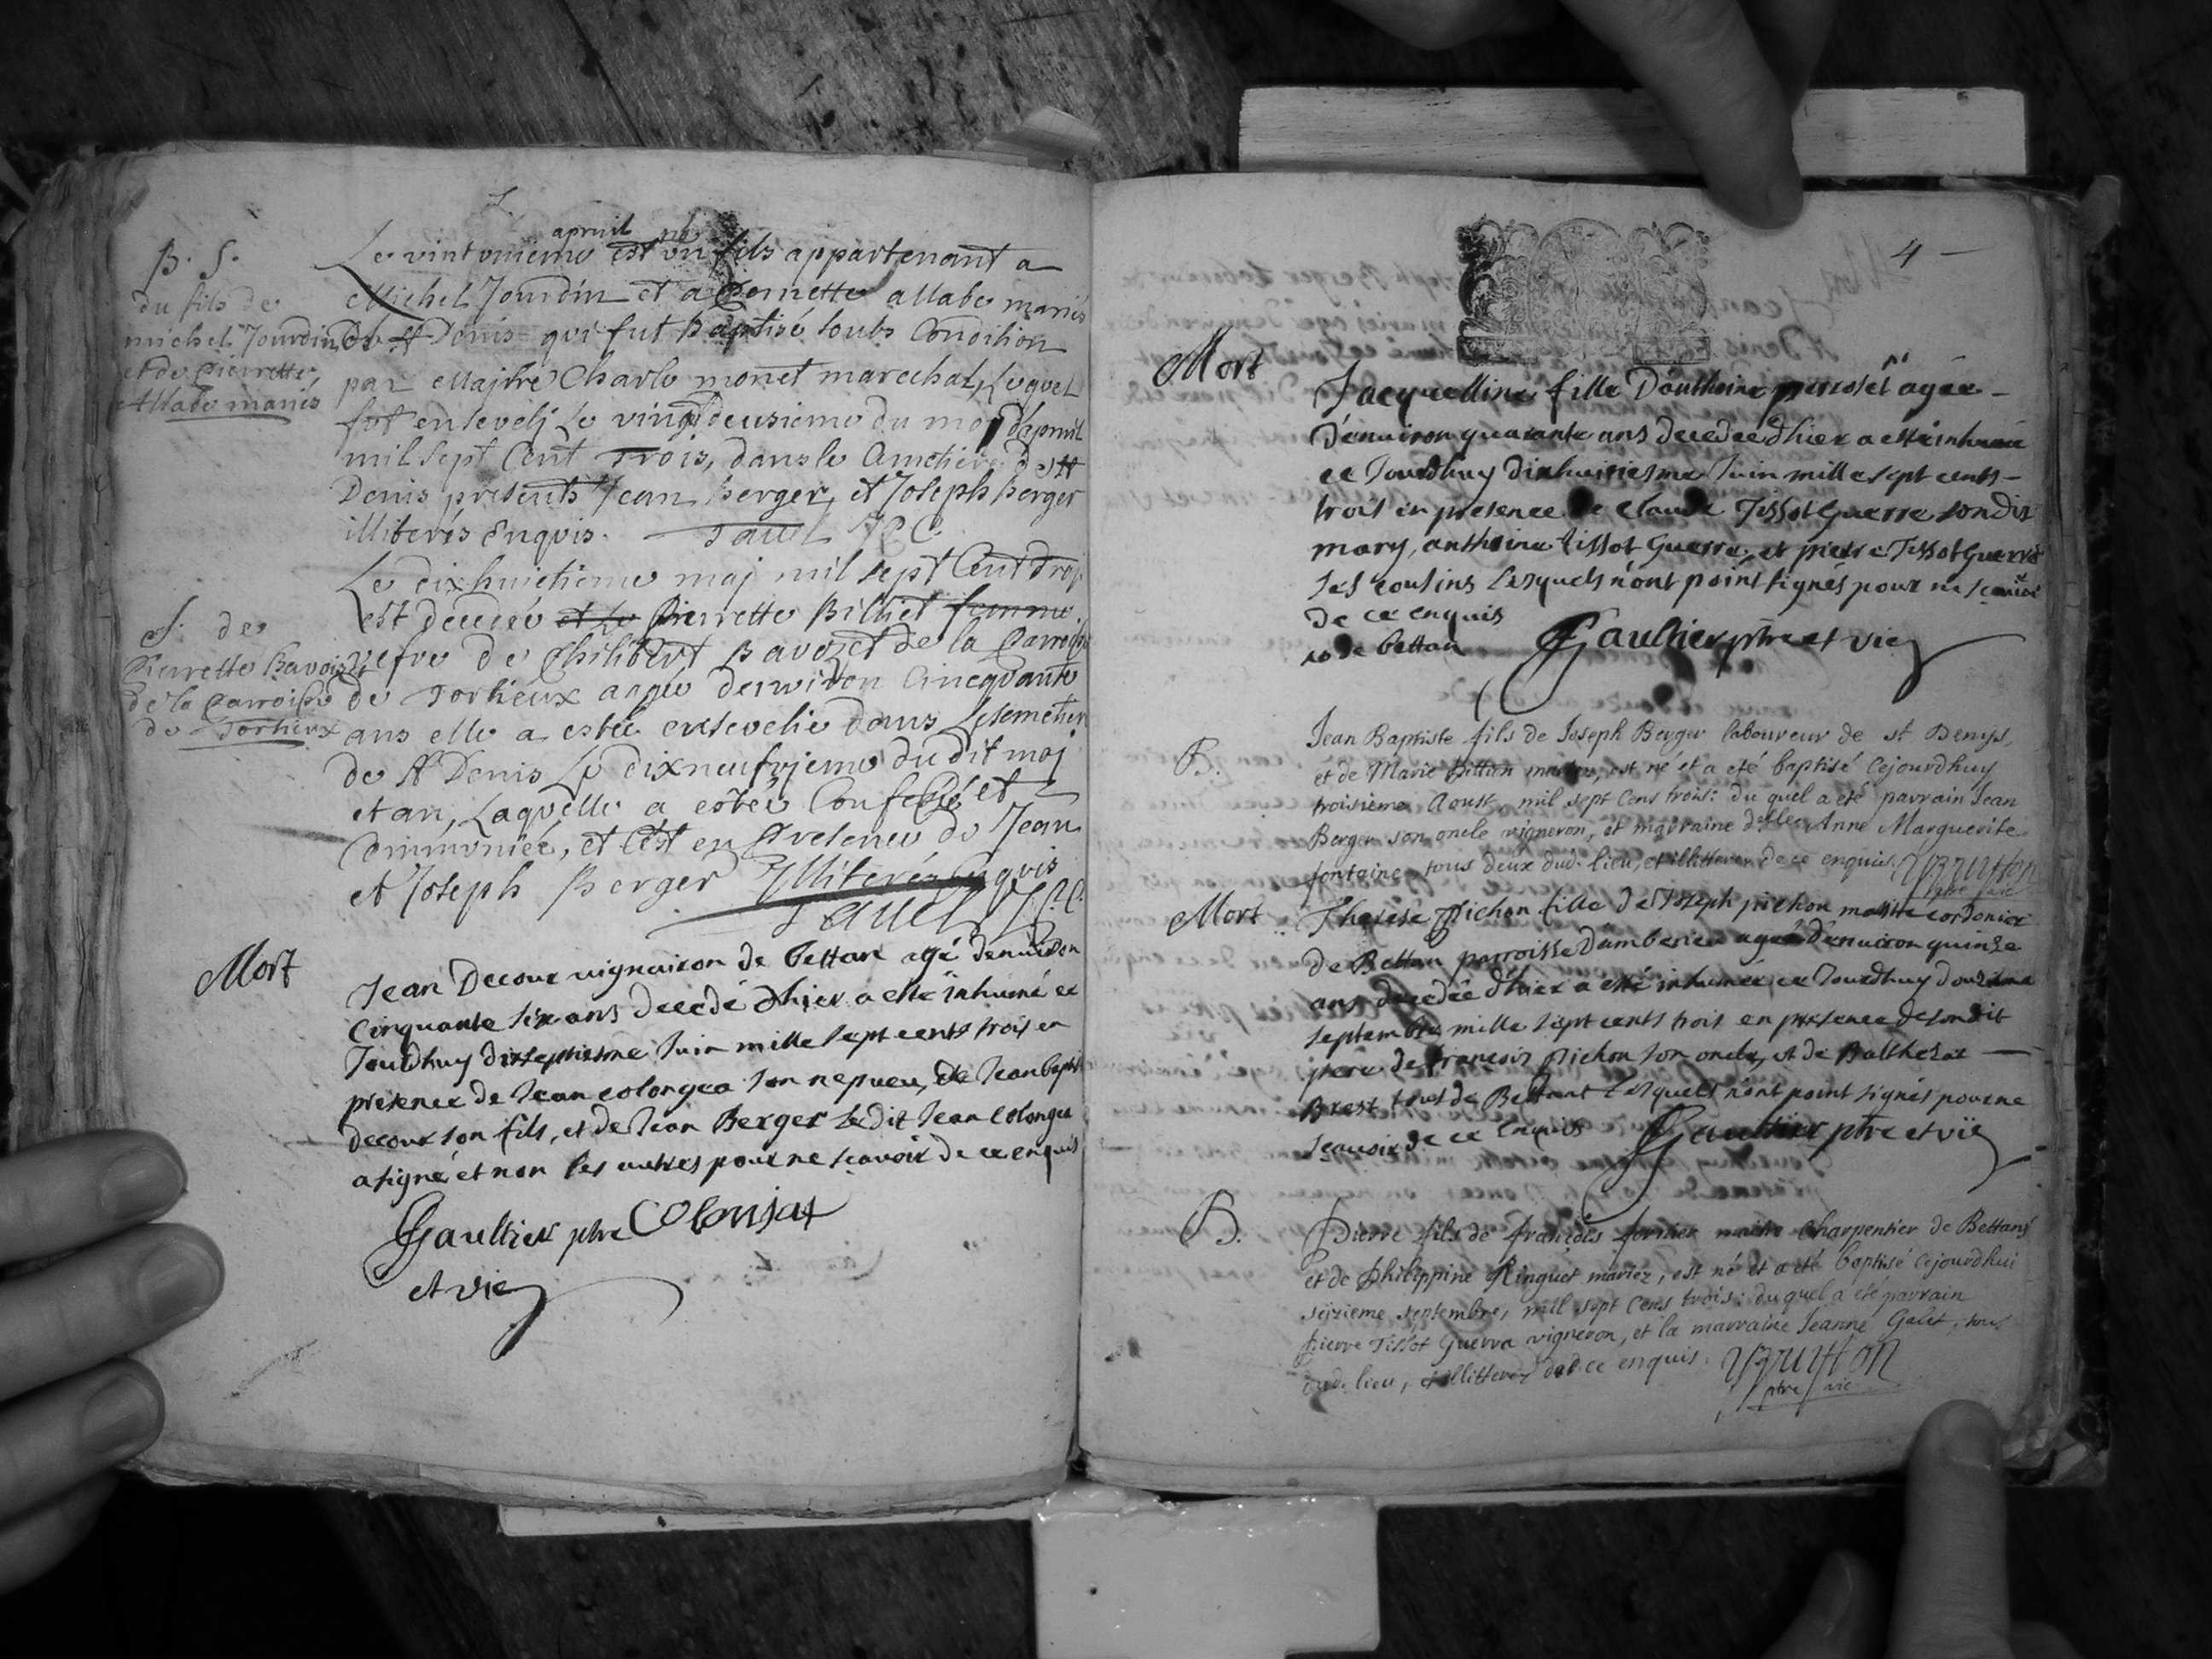 B. S.
du fils de
michel Jourdin
et de pierrette
Allabe mariés
apvril né
Le vint unieme est un fils appartenant a
Michel Jourdin et a Pernette allabe mariés
de st Denis qui fut Baptisé soubs Condition
par Maistre Charle monet marechal, Lequel
fut ensevelj Le vingt deusieme du moj dapvril
mil sept Cent Trois, dans le Cimetiere de st
Denis presents Jean berger, et Joseph berger
illiterés Enquis.
S. de
Pierrette Bavoiset
de la parroisse
de Tortieux
Le dixhuictieme maj mil sept Cent Trois
est decedée et le Pierrette Billiet femme
vefve de Philibert Bavozet de la parroisse
de Tortieux agée denwiron Cincquante
ans elle a estée ensevelie dans Le semetier
de st Denis Le dixneufvjeme du dit maj
et an, Laquelle a estée Confessé et
Communiée, et C'est en presence de Jean
et Joseph Berger Illiterés enquis
Mort
Jean Decour vigneron de bettan agé denviron
Cinquante six ans decedé dhier a esté inhumé ce
Jourdhuy dixseptiesme Juin mille sept cents trois en
presence de Jean colongea son nepueu, de Jean baptiste
decour son fils, et de Jean Berger Ledit Jean Colongea
a signé et non les autres pour ne scavoir de ce enquis
Gaultier ptre Colonjat
et vic
4
Mort
Jacquelline fille D'anthoine perroset agée
D'enuiron quarante ans decedée d'hier a esté inhumée
ce Jourdhuy dixhuitiesme Juin mille sept cents
trois en presence de Claude Tissot Guerre son dit
mary, anthoine tissot Guerre, et pierre Tissot Guerre
ses cousins Lesquels n'ont point signés pour ne scavoir
de ce enquis
de bettan Gaultier ptre et vic
B.
Jean Baptiste fils de Joseph Berger laboureur de st Denys,
et de Marie Billion mariez, est né et a eté baptisé Cejourdhuy
troisieme Aoust mil sept Cens trois: du quel a eté parrain Jean
Berger son oncle vigneron, et marraine delle Anne Marguerite
fontaine tous deux dud. lieu, et illitterez de ce enquis.
ptre vic
Mort
Therese Pichon fille de Joseph pichon maitre cordonier
de Bettan parroisse D'amberieu agée D'enuiron quinze
ans decedée d'hier a esté inhumée ce Jourdhuy douzieme
septembre mille sept cents trois en presence de son dit
pere de francois Pichon son oncle, et de Balthesar
Brest tous de Bettant Lesquels n'ont point signés pour ne
scauoir de ce Enquis Gaultier ptre et vic
B.
Pierre fils de françois fornier maitre Charpentier de Bettans
et de Philippine Ringuet mariez, est né et a eté baptisé Cejourdhui
seizieme septembre, mil sept Cens trois: du quel a eté parrain
pierre Tissot Guerra vigneron, et la marraine Jeanne Galet, tous
dud. lieu, et illitterez de ce enquis.
ptre vic